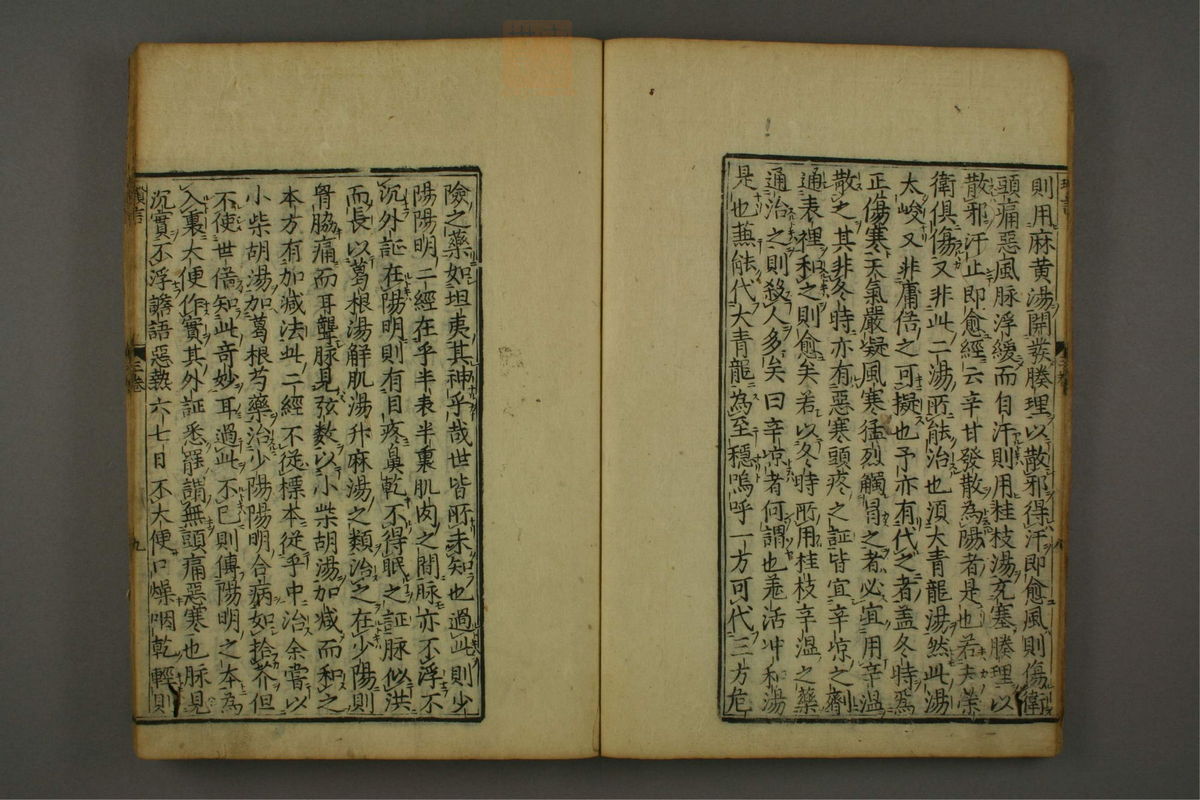 則用麻黄湯開發腠理以散邪得汗即愈風則傷衛
頭痛惡風脉浮緩而自汗則用桂枝湯充塞腠理以
散邪汗止即愈經云辛甘發散為陽者是也若夫榮
衛俱傷又非此二湯所能治也須大青龍湯然此湯
太峻又非庸俗之可擬也予亦有代之者盖冬時為
正傷寒天氣嚴凝風寒猛烈觸冒之者必宜用辛温
散之其非冬時亦有惡寒頭疼之証皆宜辛凉之劑
通表裡和之則愈矣若以冬時所用桂枝辛温之藥
通治之則殺人多矣曰辛凉者何謂也羗活冲和湯
是也兼能代大青龍為至穩嗚呼一方可代三方危
險之藥如坦夷其神乎哉世皆所未知也過此則少
陽陽明二經在乎半表半裏肌肉之間脉亦不浮不
沉外証在陽明則有目疼鼻乾不得眠之証脉似洪
而長以葛根湯解肌湯升麻湯之類治之在少陽則
胷脇痛而耳聾脉見弦数以小柴胡湯加减而和之
本方有加减法此二經不從標本從乎中治余嘗以
小柴胡湯加葛根芍藥治少陽陽明合病如拾芥但
不使世俗知此奇妙耳過此不已則傳陽明之本為
入裏大便作實其外証悉罷謂無頭痛惡寒也脉見
沉實不浮譫語惡熱六七日不大便口燥咽乾輕則
三卷
九